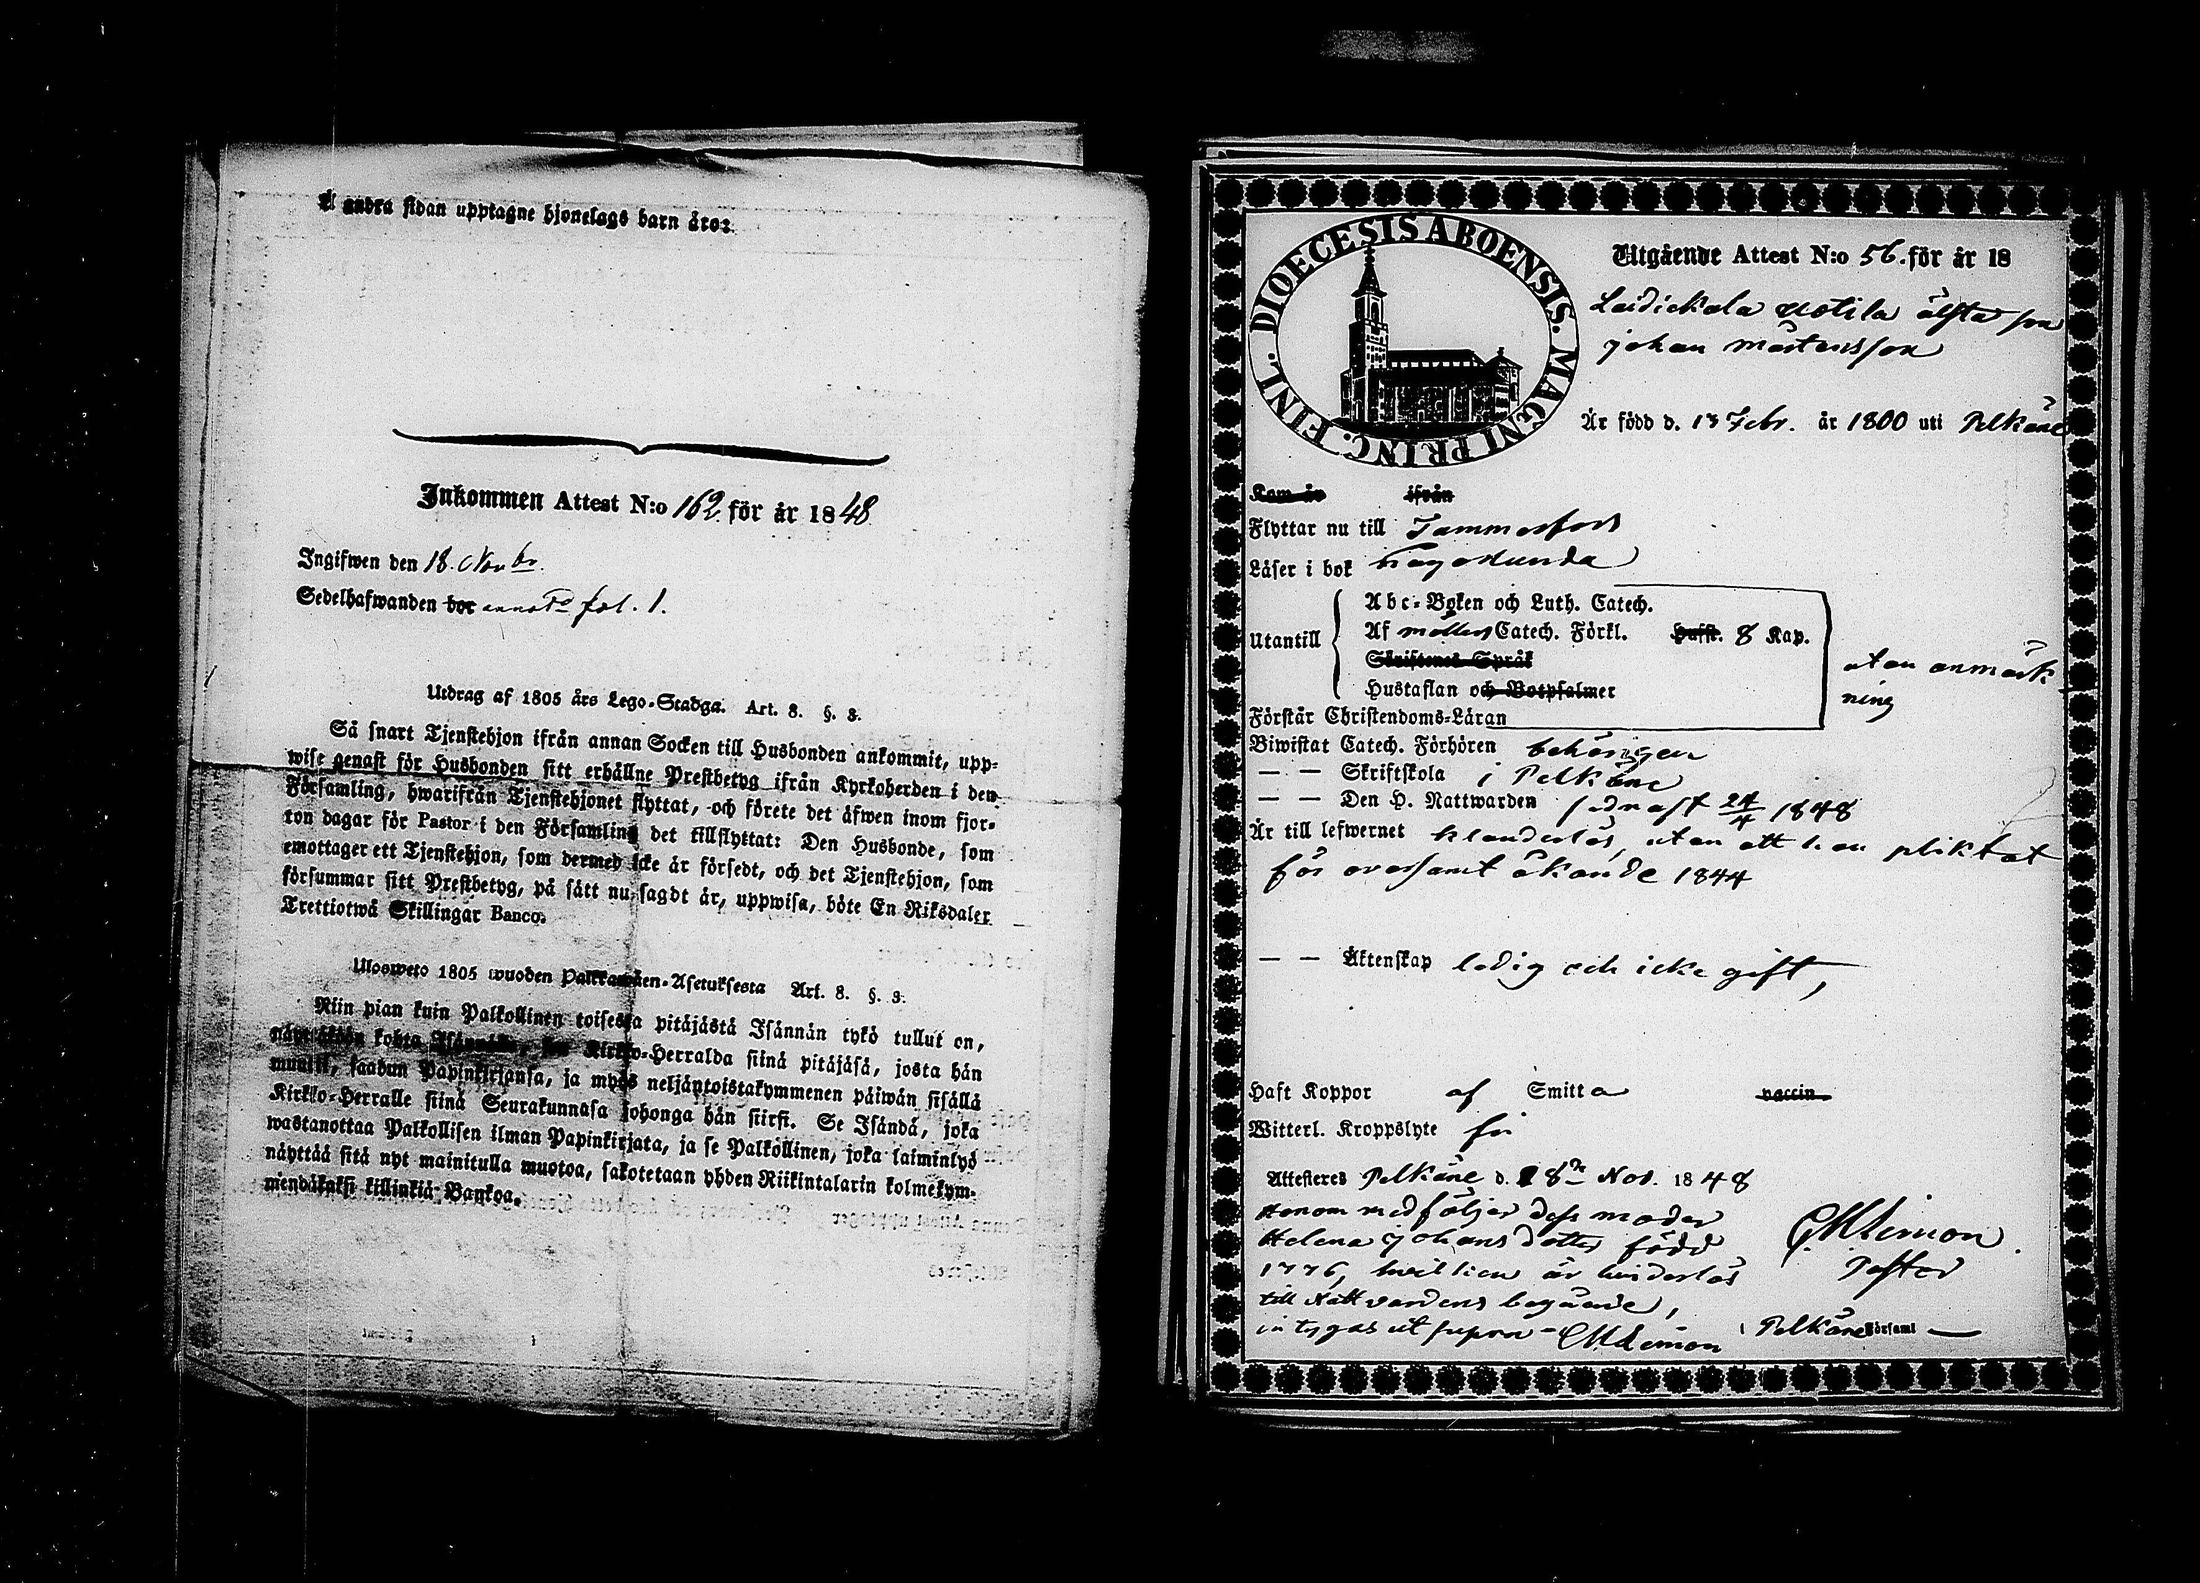 Å andra sidan upptagne hjonelags barn äro:
Inkommen Attest N:o 162 för år 1848
Ingifwen den 18. Novbr.
Sedelhafwanden bor annot. fol. 1.
Utdrag af 1805 års Lego-Stadga. Art. 8. §. 3.
Så snart Tjenstehjon ifrån annan Socken till Husbonden ankommit, upp-
wise genast för Husbonden sitt erhållne Prestbetyg ifrån Kyrkoherden i den
Församling, hwarifrån Tjenstehjonet flyttat, och förete det äfwen inom fjor-
ton dagar för Pastor i den Församling det tillflyttat: Den Husbonde, som
emottager ett Tjenstehjon, som dermed icke är försedt, och det Tjenstehjon, som
försummar sitt Prestbetyg, på sätt nu sagdt är, uppwisa, böte En Riksdaler
Trettiotwå Skillingar Banco.
Ulosweto 1805 wuoden Palkkawäen-Asetuksesta Art. 8. §. 3.
Niin pian kuin Palkollinen toisesta pitäjästä Isännän tykö tullut on,
näyttäköön kohta Isännälle, sen Kirkko-Herralda siinä pitäjäsä, josta hän
muutti, saadun Papinkirjansa, ja myös neljäntoistakymmenen päiwän sisällä
Kirkko-Herralle siinä Seurakunnasa johonga hän siirsi. Se Isändä, joka
wastanottaa Palkollisen ilman Papinkirjata, ja se Palkollinen, joka laiminlyö
näyttää sitä nyt mainitulla muotoa, sakotetaan yhden Riikintalarin kolmekym-
mendäkaksi killinkiä Bankoa.
DIOECESIS ABOENSIS. MAGNI PRINC. FINL.
Utgående Attest N:o 56. för år 18
Laidickala Uotila älsta son
Johan Mårtensson
Är född d. 13 Febr. år 1800 uti Pelkäne
Kom år ifrån
Flyttar nu till Tammerfors
Läser i bok
Abc-Boken och Luth. Catech.
Utantill Af möllers Catech. Förkl. Husst. 8 Kap.
Skriftenes Språk
Hustaflan och Botpsalmer
utan anmärk-
ning
Förstår Christendoms-Läran
Biwistat Catech. Förhören behörigen
— — Skriftskola i Pelkäne
— — Den H. Nattwarden sednast 24/4 1848
Är till lefwernet klanderlös, utan att han pliktat
för oversamt åkande 1844
— — Äktenskap ledig och icke gift,
Haft Koppor af Smitta vaccin
Witterl. Kroppslyte fri
Attesteres Pelkäne d. 18de Nov. 1848
Honom medföljer dess moder
Helena Johansdotter född
1776, hvilken är hinderlös
till Nattvardens begående,
intygas ut supra — CMLemon
CMLemon
Pastor
i Pelkäne Församl —